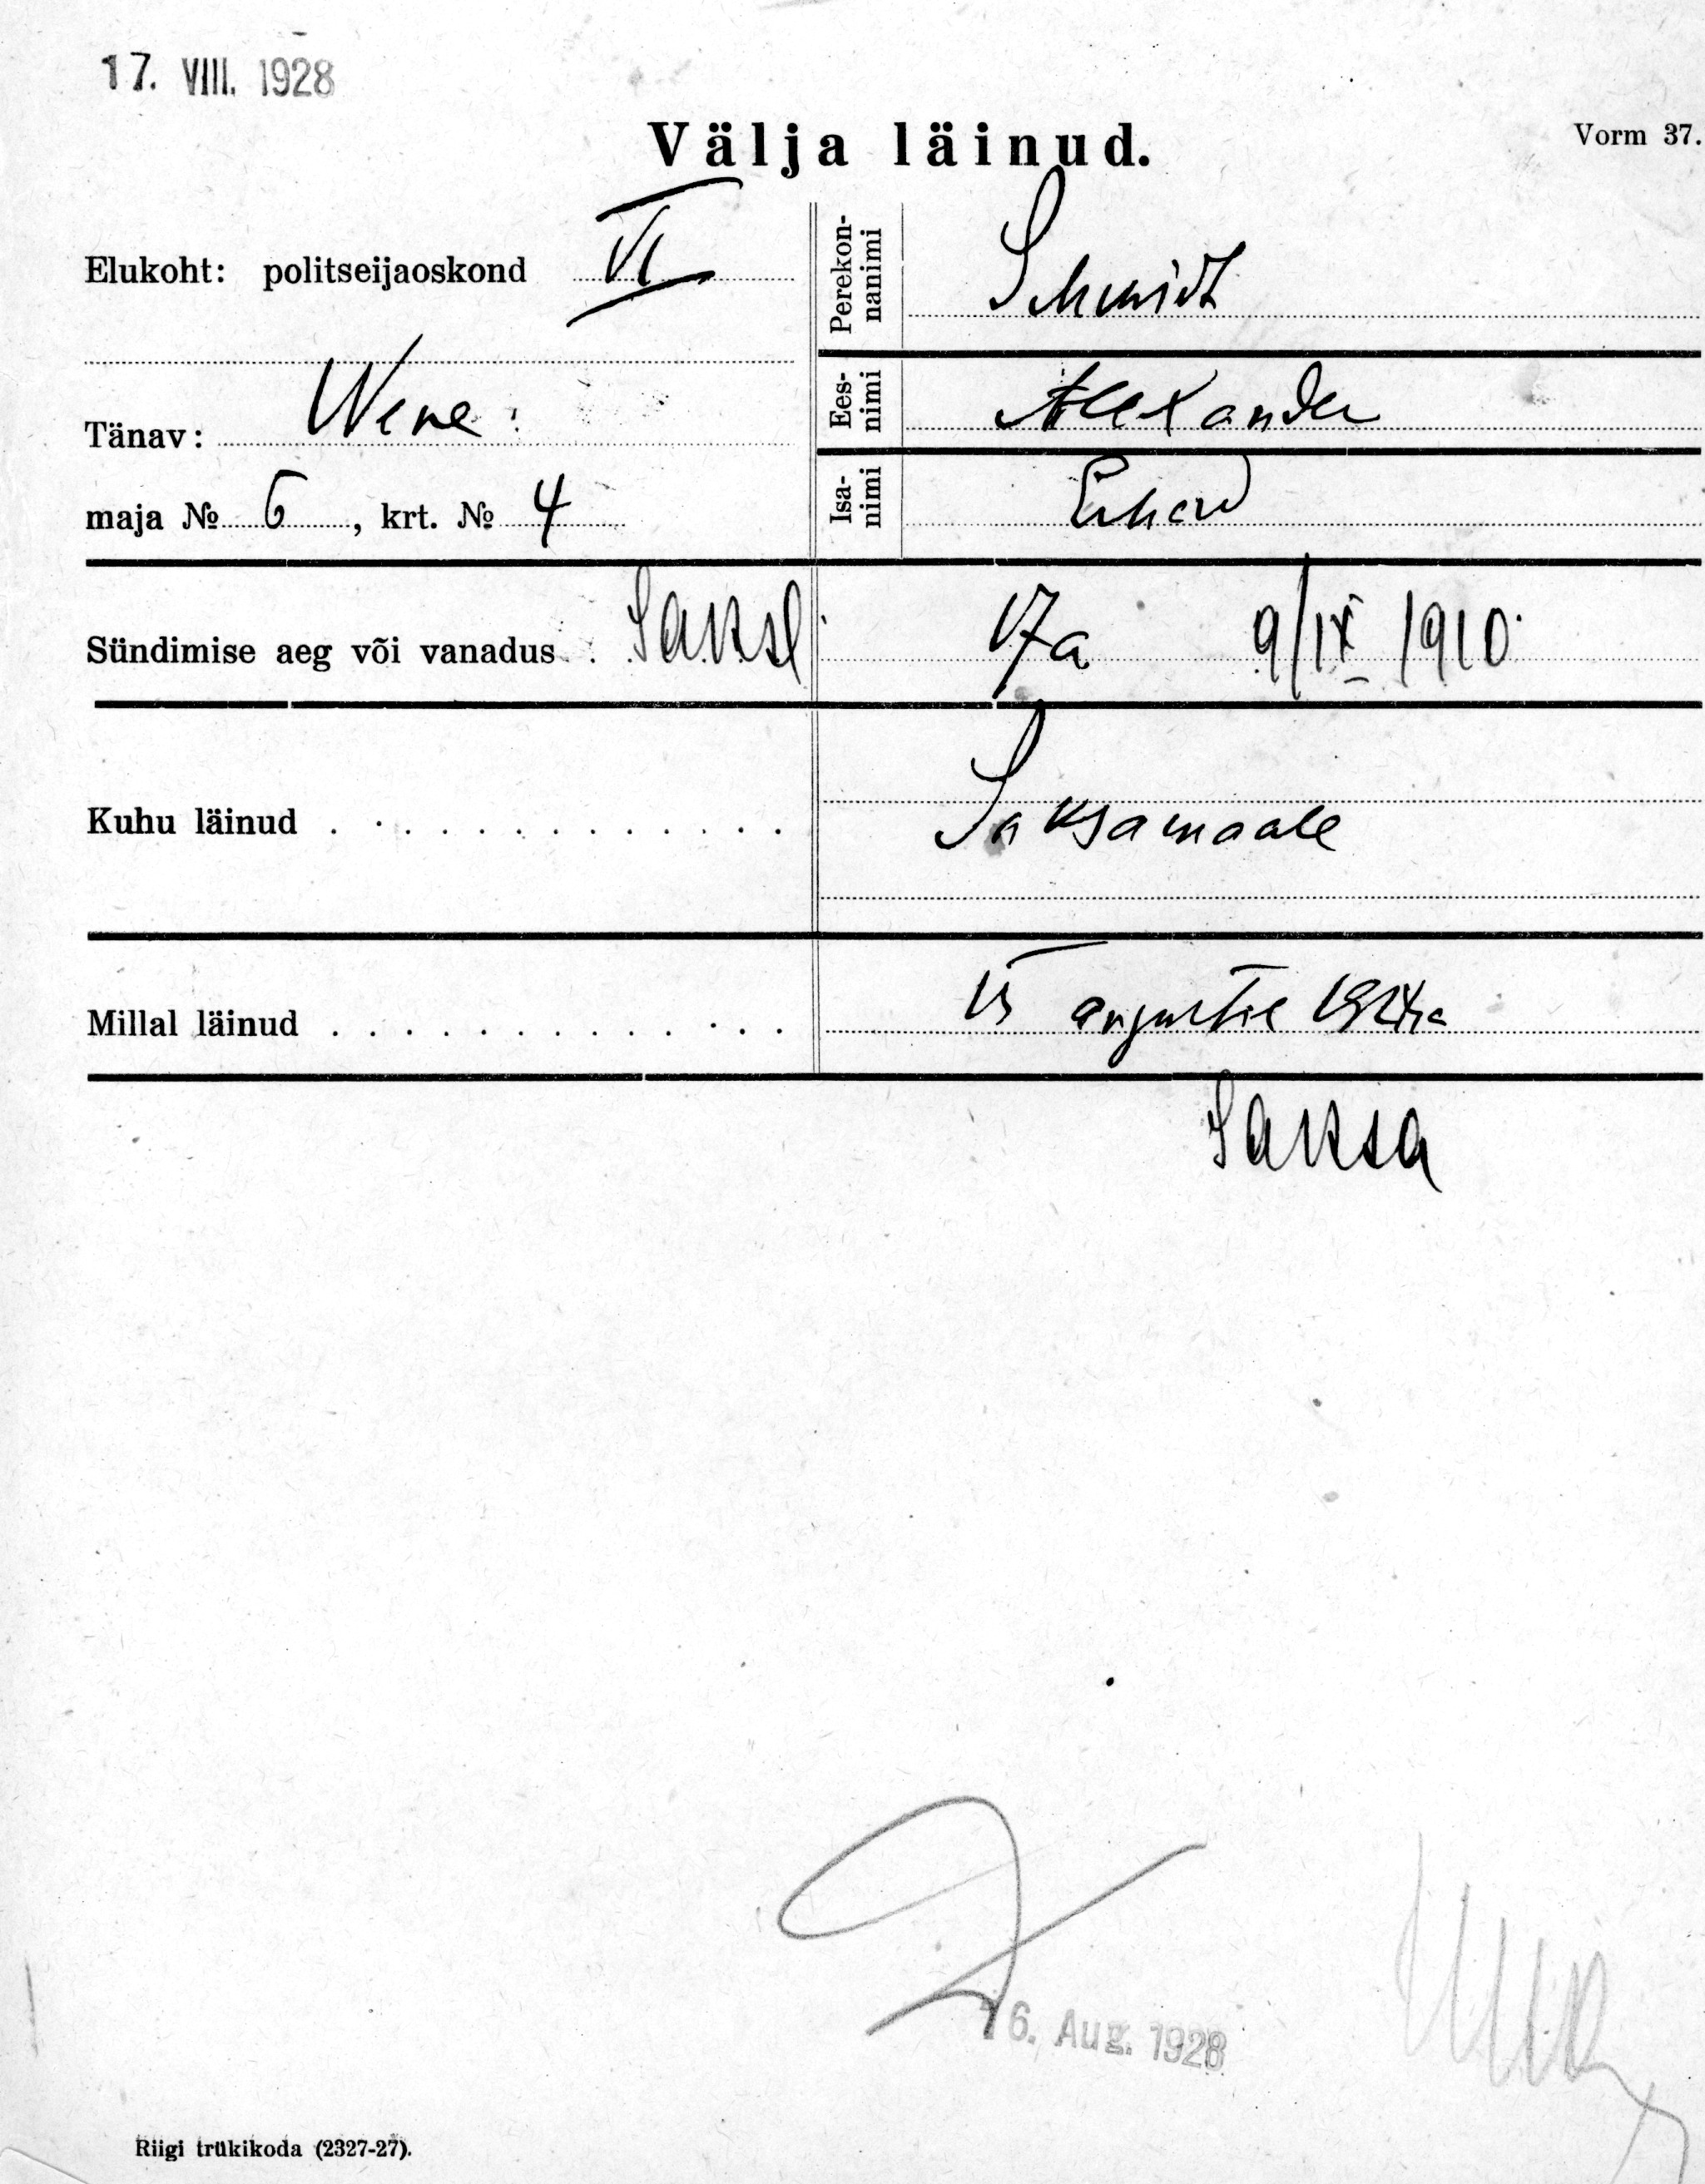 17. VIII. 1928
Välja läinud.
Vorm 37.
Elukoht: politseijaoskond VI
Perekon-nanimi Schmidt
Tänav: Wene
Ees-nimi Alexander
maja № 6, krt. № 4
Isa-nimi Erhard
Sündimise aeg või vanadus . . Saksl 17a 9/IX 1910
Kuhu läinud . . . . . . . . . . . . . Saksamaale
Millal läinud . . . . . . . . . . . . . 15 augustil
Saksa
16. Aug. 1928
Riigi trükikoda (2327-27).